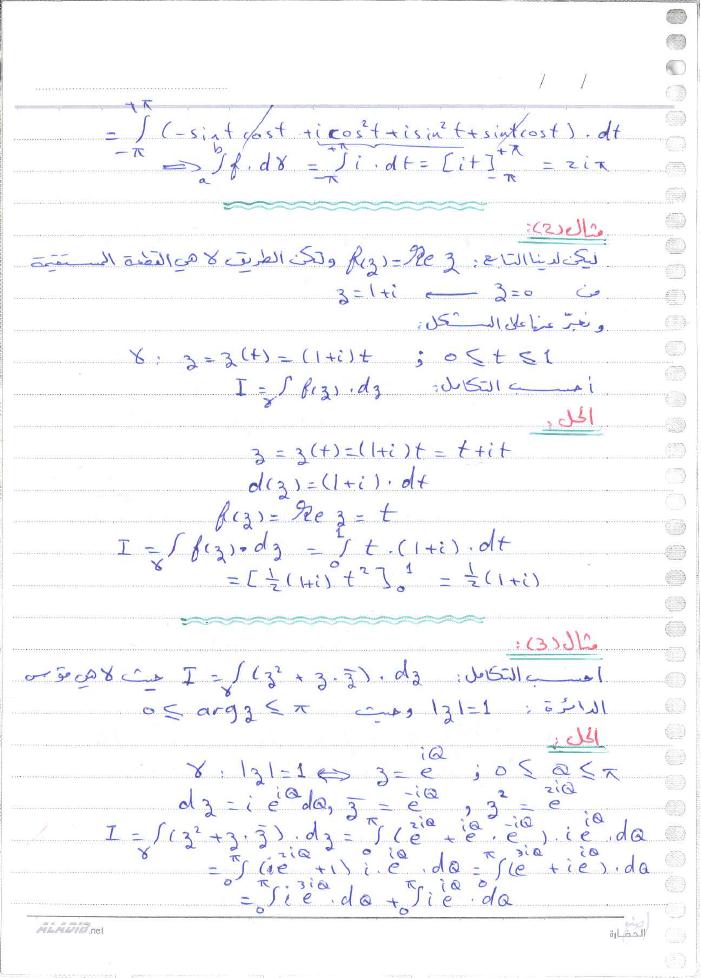 / /
= ∫_{-π}^{+π} (-sint cost + i cos²t + i sin²t + sint cost) . dt
⟹ ∫_a^b f . dγ = ∫_{-π}^{+π} i . dt = [it]_{-π}^{+π} = 2iπ
مثال (2):
ليكن لدينا التابع: f(z) = Re z ولتكن الطريق γ هي القطعة المستقيمة
من z=0 ⟵ z=1+i
ونعبّر عنها على الشكل:
γ : z = z(t) = (1+i)t ; 0 ≤ t ≤ 1
احسب التكامل: I = ∫_γ f(z) . dz
الحل:
z = z(t) = (1+i)t = t+it
d(z) = (1+i) . dt
f(z) = Re z = t
I = ∫_γ f(z) . dz = ∫_0^1 t . (1+i) . dt
= [½(1+i) t²]_0^1 = ½(1+i)
مثال (3):
احسب التكامل: I = ∫_γ (z² + z . z̄) . dz حيث γ هي قوس
الدائرة : |z|=1 وحيث 0 ≤ arg z ≤ π
الحل:
γ : |z|=1 ⟺ z = e^{iQ} ; 0 ≤ Q ≤ π
dz = i e^{iQ} dQ, z̄ = e^{-iQ} , z² = e^{2iQ}
I = ∫_γ (z² + z . z̄) . dz = ∫_0^π (e^{2iQ} + e^{iQ} . e^{-iQ}) . i e^{iQ} . dQ
= ∫_0^π (ie^{2iQ} + 1) i . e^{iQ} . dQ = ∫_0^π (e^{3iQ} + ie^{iQ}) . dQ
= ∫_0^π i e^{3iQ} . dQ + ∫_0^π i e^{iQ} . dQ
ALADIB.net
الحضارة